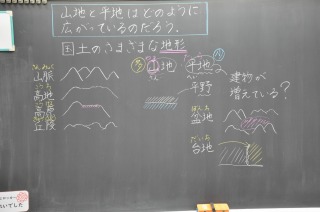 山地と平地はどのように
広がっているのだろう。
国土のさまざまな地形
山地
平地
山脈
高地
高原
丘陵
平野
ぼんち
盆地
だいち
台地
建物が
増えている?